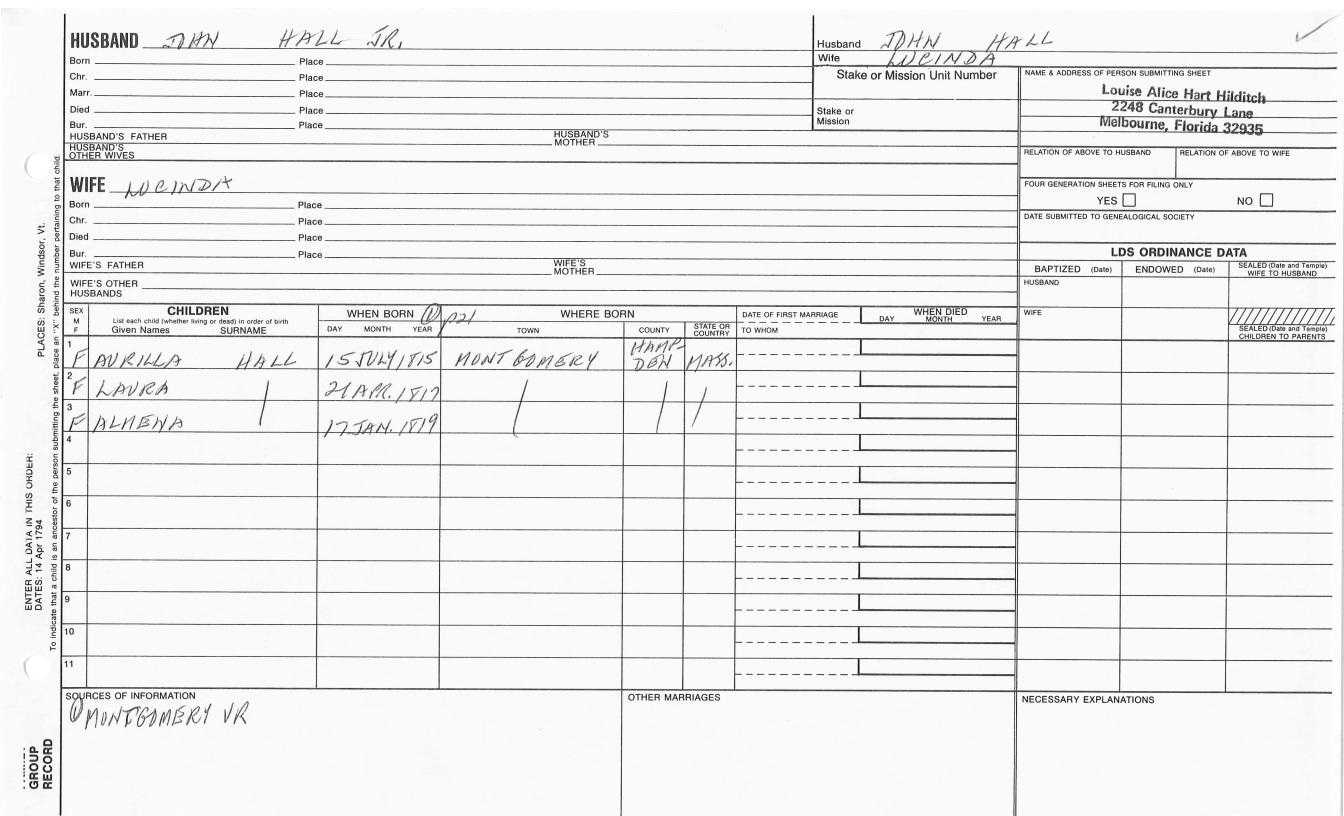 HUSBAND JOHN HALL JR.
Born Place
Chr. Place
Marr. Place
Died Place
Bur. Place
HUSBAND'S FATHER HUSBAND'S MOTHER
HUSBAND'S OTHER WIVES
Husband JOHN HALL
Wife LUCINDA
Stake or Mission Unit Number
Stake or Mission
NAME & ADDRESS OF PERSON SUBMITTING SHEET
Louise Alice Hart Hilditch
2248 Canterbury Lane
Melbourne, Florida 32935
RELATION OF ABOVE TO HUSBAND RELATION OF ABOVE TO WIFE
FOUR GENERATION SHEETS FOR FILING ONLY
YES NO
DATE SUBMITTED TO GENEALOGICAL SOCIETY
WIFE LUCINDA
Born Place
Chr. Place
Died Place
Bur. Place
WIFE'S FATHER WIFE'S MOTHER
WIFE'S OTHER HUSBANDS
LDS ORDINANCE DATA
BAPTIZED (Date) ENDOWED (Date) SEALED (Date and Temple) WIFE TO HUSBAND
HUSBAND
WIFE
SEALED (Date and Temple) CHILDREN TO PARENTS
SEX M F
CHILDREN
List each child (whether living or dead) in order of birth
Given Names SURNAME
WHEN BORN ① p21
DAY MONTH YEAR
WHERE BORN
TOWN COUNTY STATE OR COUNTRY
DATE OF FIRST MARRIAGE
TO WHOM
WHEN DIED
DAY MONTH YEAR
1 F AURILLA HALL 15 JULY 1815 MONTGOMERY HAMPDEN MASS.
2 F LAURA 21 APR. 1817
3 F ALMENA 17 JAN. 1819
4
5
6
7
8
9
10
11
SOURCES OF INFORMATION
① MONTGOMERY VR
OTHER MARRIAGES
NECESSARY EXPLANATIONS
ENTER ALL DATA IN THIS ORDER:
DATES: 14 Apr 1794
PLACES: Sharon, Windsor, Vt.
To indicate that a child is an ancestor of the person submitting the sheet, place an "X" behind the number pertaining to that child.
GROUP
RECORD